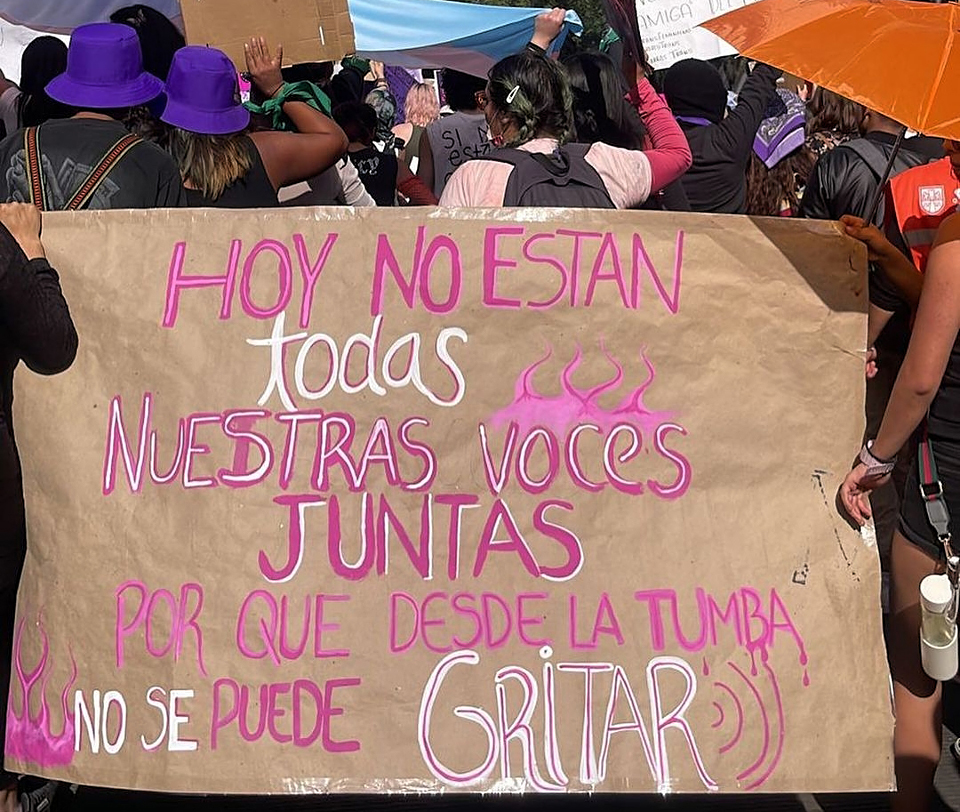 AMIGA
SI
HOY NO ESTAN
todas
NUESTRAS VOCES
JUNTAS
POR QUE DESDE LA TUMBA
NO SE PUEDE GRITAR